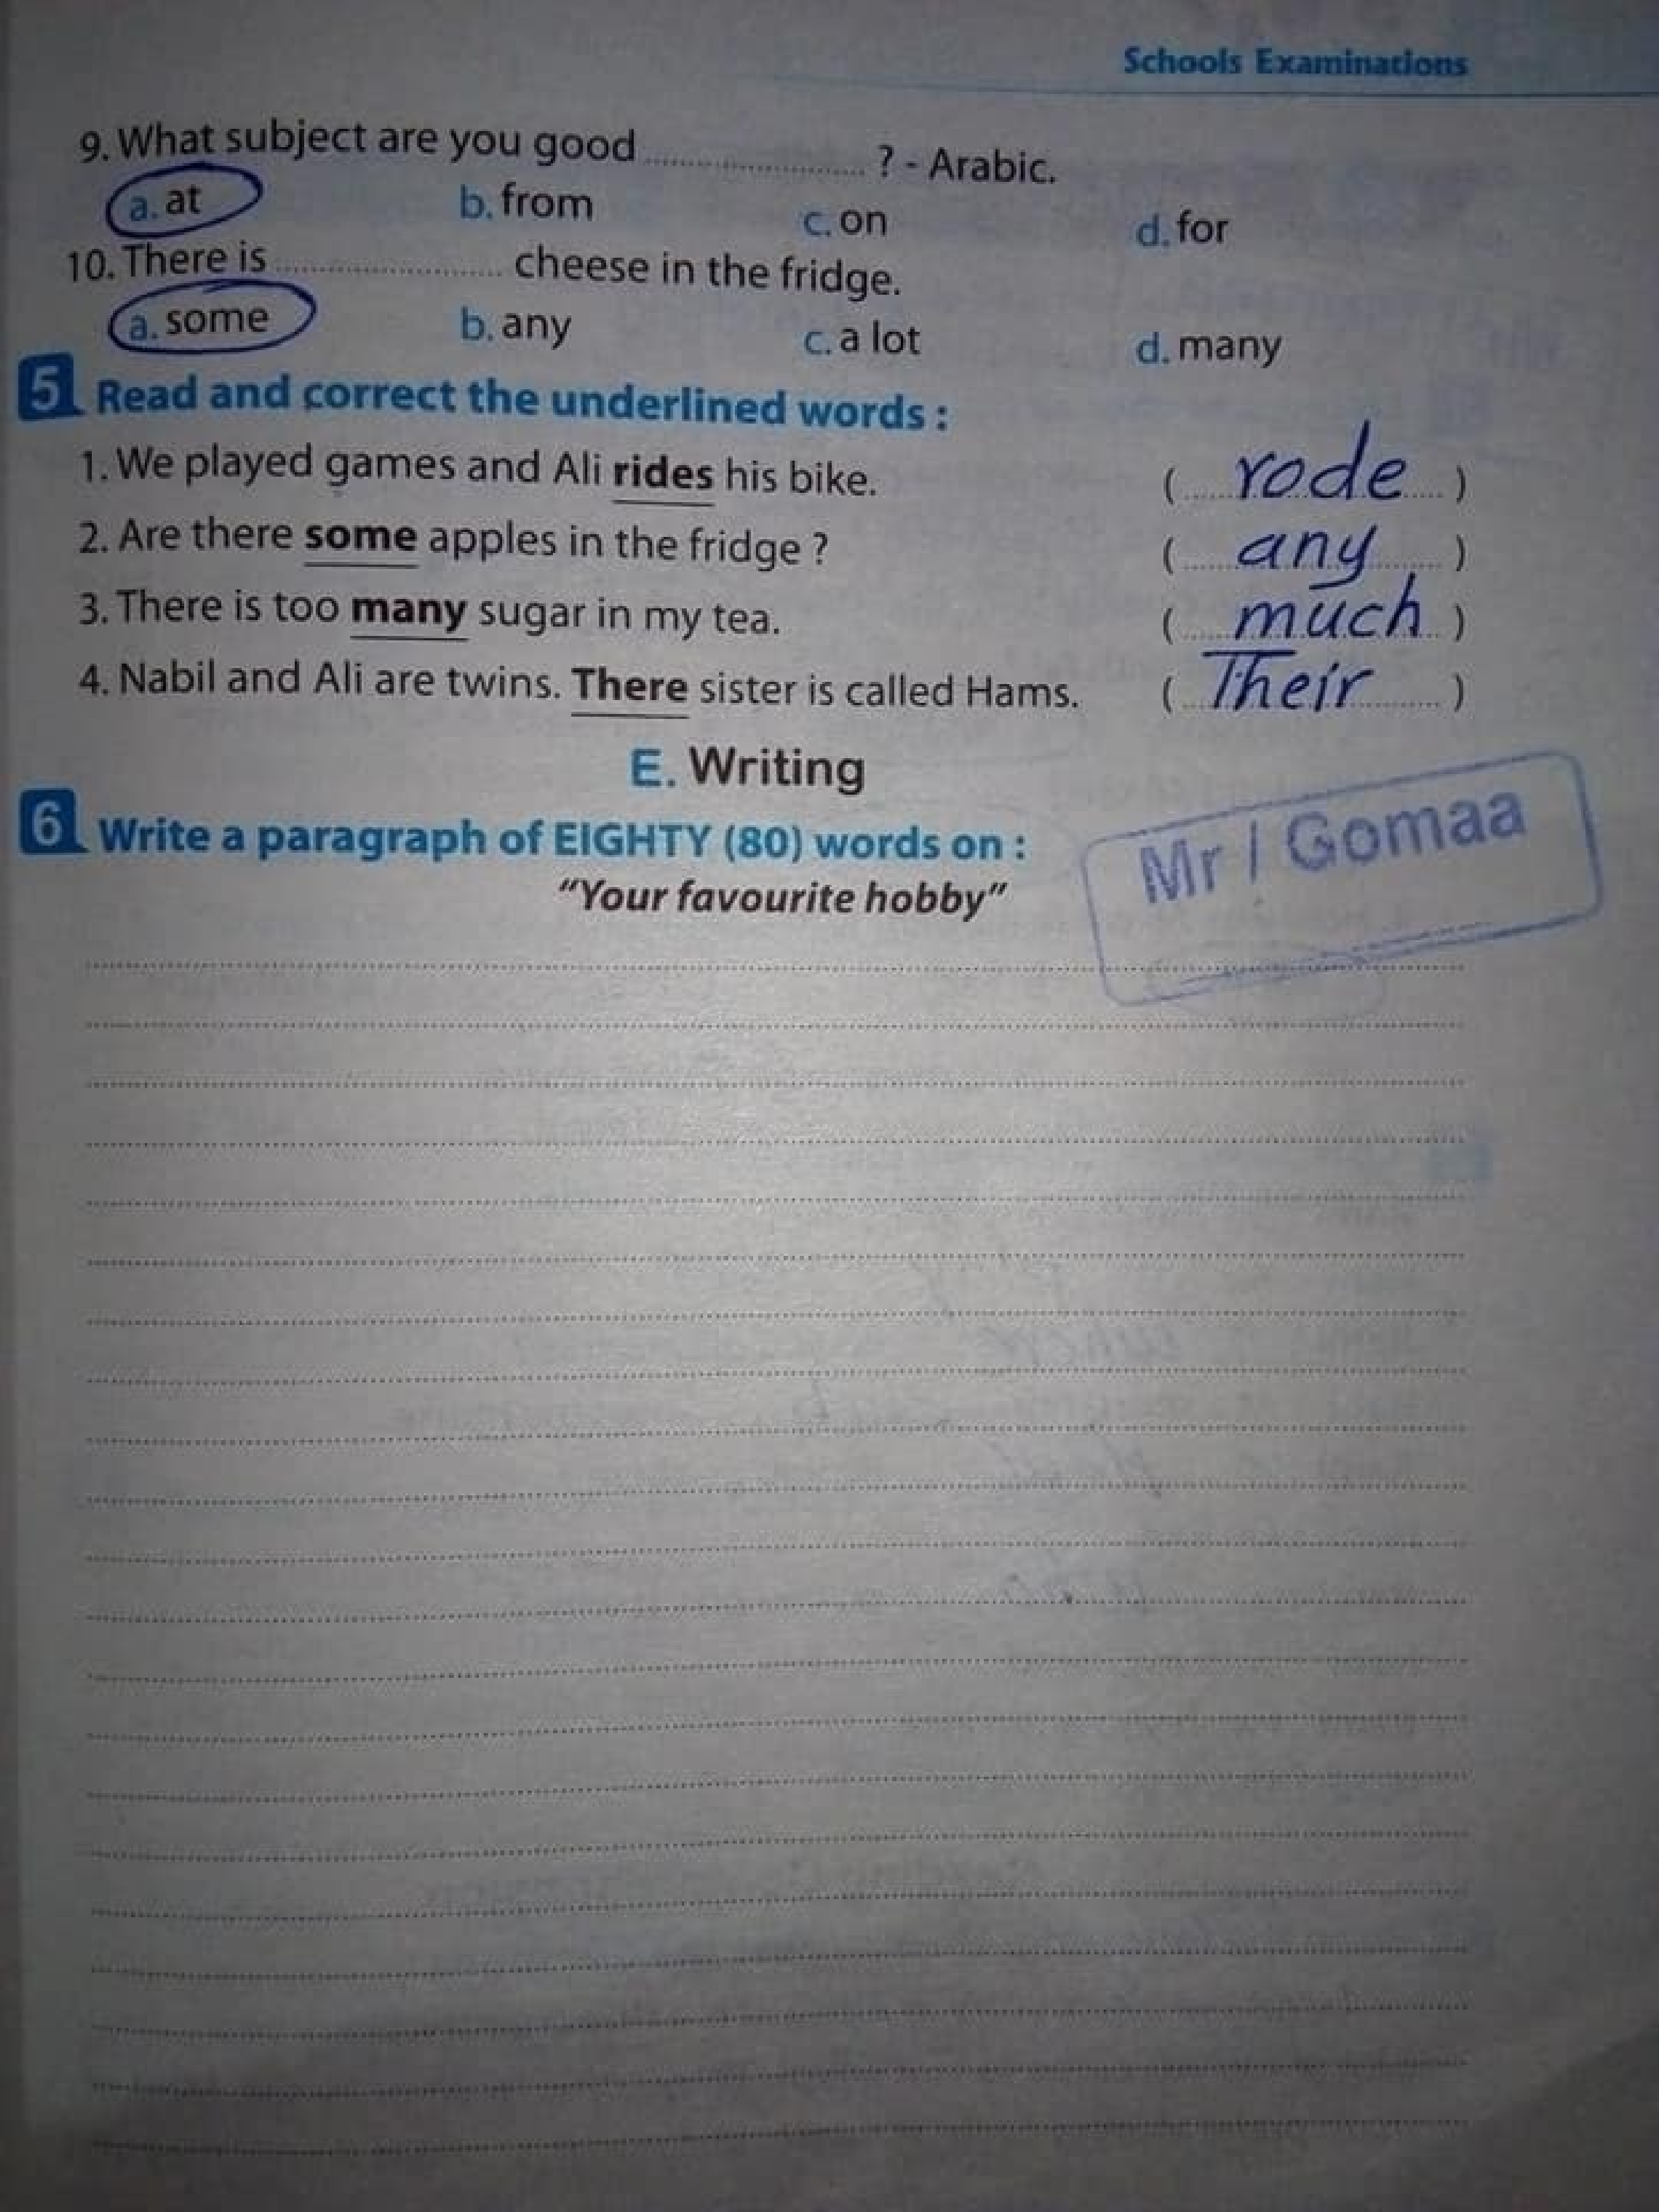 Schools Examinations
9. What subject are you good .................... ? - Arabic.
a. at b. from c. on d. for
10. There is .................... cheese in the fridge.
a. some b. any c. a lot d. many
5 Read and correct the underlined words :
1. We played games and Ali rides his bike. ( rode )
2. Are there some apples in the fridge ? ( any )
3. There is too many sugar in my tea. ( much )
4. Nabil and Ali are twins. There sister is called Hams. ( Their )
E. Writing
6 Write a paragraph of EIGHTY (80) words on :
Mr / Gomaa
"Your favourite hobby"